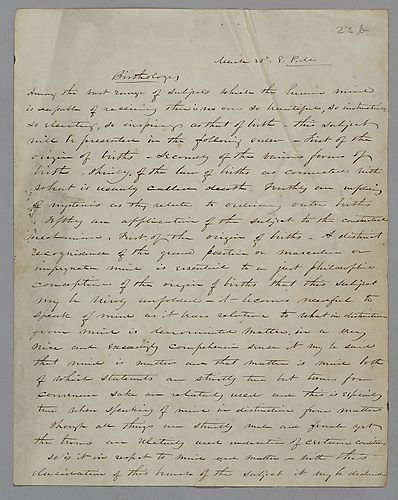 23 b
March 30th 8. P.M.
Birthology
Among the vast range of subjects which the human mind
is capable of receiving there is no one so beautiful, so instructive
so elevating, so inspiring as that of birth this subject
will be presented in the following order - First of the
origin of births - Secondly of the various forms of
births. Thirdly, of the law of births as connected with
what is usually called death Fourthly an unfolding
of mysteries as they relate to ordinary outer births
Fifthly an application of the subject to the contemplated
mechanism. First of the origin of births - A distinct
recognizance of the grand positive or masculine or
impregnative mind is essential to a just philosophic
conception of the origin of births that this subject
may be wisely unfolded it becomes needful to
speak of mind as it bears relation to what in distinction
from mind is denominated matter, in a very
nice and exceedingly comprehensive sense it may be said
that mind is matter and that matter is mind both
of which statements are strictly true but terms for
convenience sake are relatively used and this is especially
true when speaking of mind in distinction from matter
Though all things are strictly male and female yet
the terms are relatively used indicative of certain conditions
so is it in respect to mind and matter - with this
elucidation of this branch of the subject it may be declared